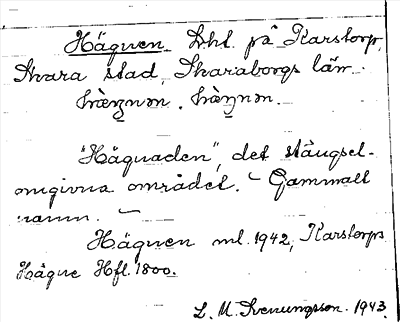 Hägnen Lht. på Karstorp,
Skara stad, Skaraborgs län.
"Hägnaden", det stängsel-
omgivna området. – Gammalt
namn. –
Hägnen ml. 1942, Karstorps
Hägne Hfl. 1800.
L. M. Svenungsson. 1943.